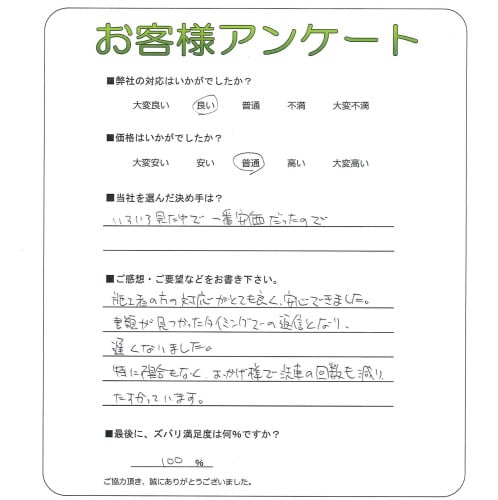 お客様アンケート
■弊社の対応はいかがでしたか？
大変良い 良い 普通 不満 大変不満
■価格はいかがでしたか？
大変安い 安い 普通 高い 大変高い
■当社を選んだ決め手は？
いろいろ見た中で一番安価だったので
■ご感想・ご要望などをお書き下さい。
施工者の方の対応がとても良く、安心できました。
書類が見つかったタイミングでの返信となり、
遅くなりました。
特に問題もなく、おかげ様で洗車の回数も減り、
たすかっています。
■最後に、ズバリ満足度は何％ですか？
100 ％
ご協力頂き、誠にありがとうございました。